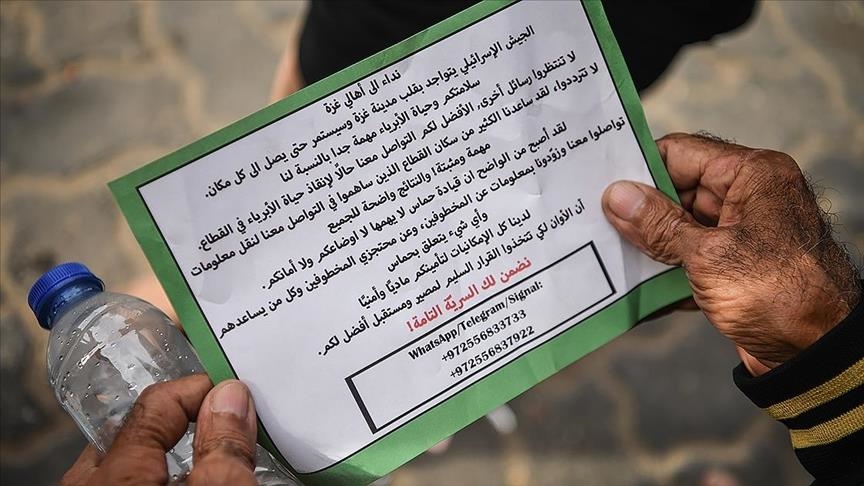 نداء الى أهالي غزة
الجيش الإسرائيلي يتواجد بقلب مدينة غزة وسيستمر حتى يصل الى كل مكان.
سلامتكم وحياة الأبرياء مهمة جدا بالنسبة لنا
لا تنتظروا رسائل أخرى، الأفضل لكم التواصل معنا حالًا لإنقاذ حياة الأبرياء في القطاع.
لا تترددوا، لقد ساعدنا الكثير من سكان القطاع الذين ساهموا في التواصل معنا لنقل معلومات
مهمة ومثبتة، والنتائج واضحة للجميع
لقد أصبح من الواضح ان قيادة حماس لا يهمها لا اوضاعكم ولا أمانكم.
تواصلوا معنا وزوّدونا بمعلومات عن المخطوفين، وعن محتجزي المخطوفين وكل من يساعدهم
وأي شيء يتعلق بحماس
لدينا كل الإمكانيات لتأمينكم ماديًا وأمنيًا
آن الأوان لكي تتخذوا القرار السليم لمصير ومستقبل أفضل لكم.
نضمن لك السريّة التامة!
WhatsApp/Telegram/Signal:
+972556833733
+972556837922